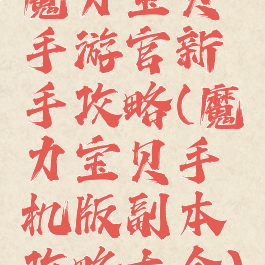 魔力宝贝
手游官新
手攻略(魔
力宝贝手
机版副本
攻略大全)